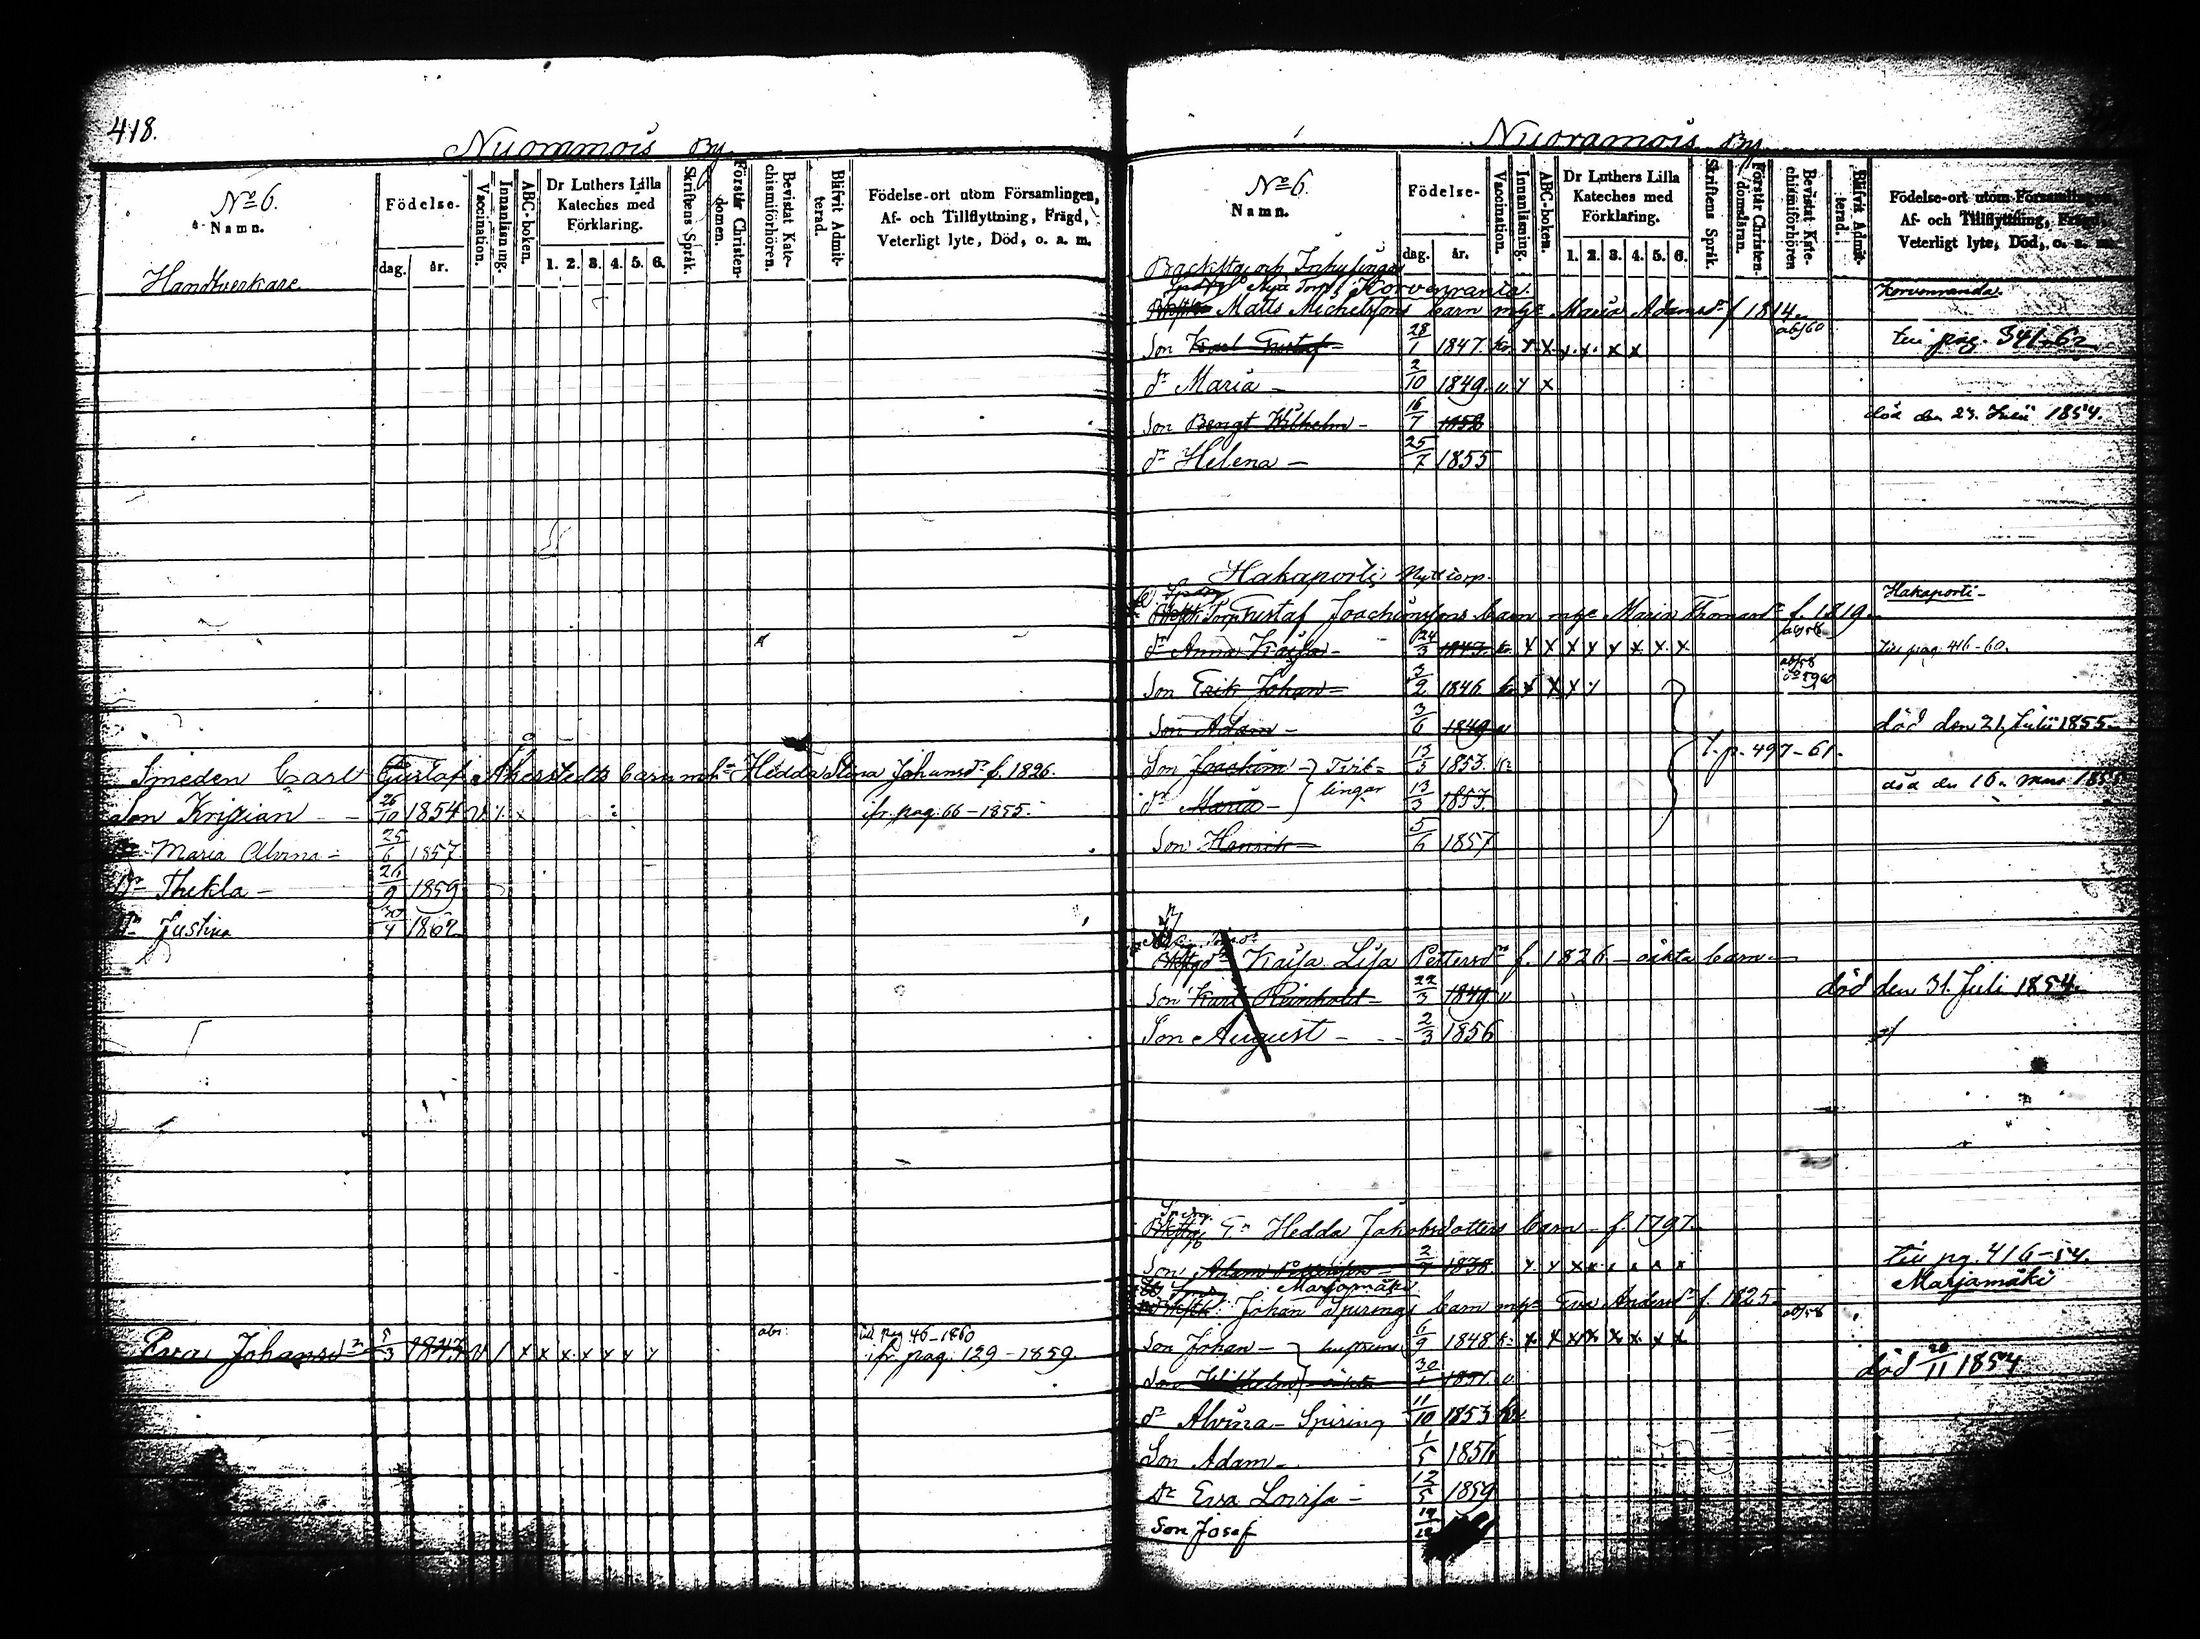 418.
Nuoramois By
No 6.
Namn.
Födelse-
dag. år.
Vaccination.
Innanläsning.
ABC-boken.
Dr Luthers Lilla Kateches med Förklaring.
1. 2. 3. 4. 5. 6.
Skriftens Språk.
Förstår Christendomen.
Bevistat Katechismiförhören.
Blifvit Admitterad.
Födelse-ort utom Församlingen,
Af- och Tillflyttning, Frägd,
Veterligt lyte, Död, o. a. m.
Handtverkare
Smeden Carl Gustaf Åkerstedts barn m h Hedda Stina Johansdr f. 1826.
Son Krispian - 26/10 1854 v ifr. pag. 66-1855.
Dr Maria Alvina - 25/6 1857
Dr Thekla - 26/9 1859
Dr Justina 30/4 1862
till pag 46-1860
Eva Johansdr 5/3 1843 v / x x x x x x x abs: ifr. pag. 129-1859
Nuoramois By
No 6.
Namn.
Födelse-
dag. år.
Vaccination.
Innanläsning.
ABC-boken.
Dr Luthers Lilla Kateches med Förklaring.
1. 2. 3. 4. 5. 6.
Skriftens Språk.
Förstår Christendomsläran.
Bevistat Katechismiförhören
Blifvit Admitterad.
Födelse-ort utom Församlingen,
Af- och Tillflyttning, Frägd,
Veterligt lyte, Död, o. a. m.
Backstu och Inhysingar
Nya Torp Korvenranta. Korvenranda.
Matts Michelssons barn m h Maria Adamsdr f 1814.
Son Karl Gustaf - 28/1 1847. x x x x x x abs 60 till pag. 341-62
dr Maria - 2/10 1849 v x x
Son Bengt Wilhelm - 16/7 1852 död den 23. Juli 1854.
dr Helena - 25/7 1855
Hakaporti Nytt torp. Hakaporti -
Gustaf Joachimssons barn m h Maria Thomasdr f. 1819.
dr Anna Kajsa - 24/3 1843 x x x x x x x x abs 58 till pag. 416-60.
Son Erik Johan - 3/2 1846 x x x abs 58
Son Adam - 3/6 1849 v död den 21 Juli 1855.
Son Joachim - Tvil- 13/3 1853. t. p. 497-61.
dr Maria - lingar 13/3 1853. död den 16. Mars
Son Henrik - 5/6 1857
Kaisa Lisa Pettersdr f. 1826 - oäkta barn -
Son Karl Reinhold - 22/3 1849 v död den 31. Juli 1854.
Son August - 2/3 1856
Hedda Jakobsdotters barn - f. 1797
Son Adam 2/7 1838. x x x x x x x x till pg. 416-54.
Marjamäki Marjamäki
Johan Spirings barn m h Eva Andersdr f. 1825 - abs 58
Son Johan - hustruns 6/9 1848 x x x x x x x x
Son Wilhelm - oäkta 30/1 1851. v död 20/11 1854
dr Alvina - Spiring 11/10 1853
Son Adam - 1/5 1856
Dr Eva Lovisa - 12/5 1859
Son Josef